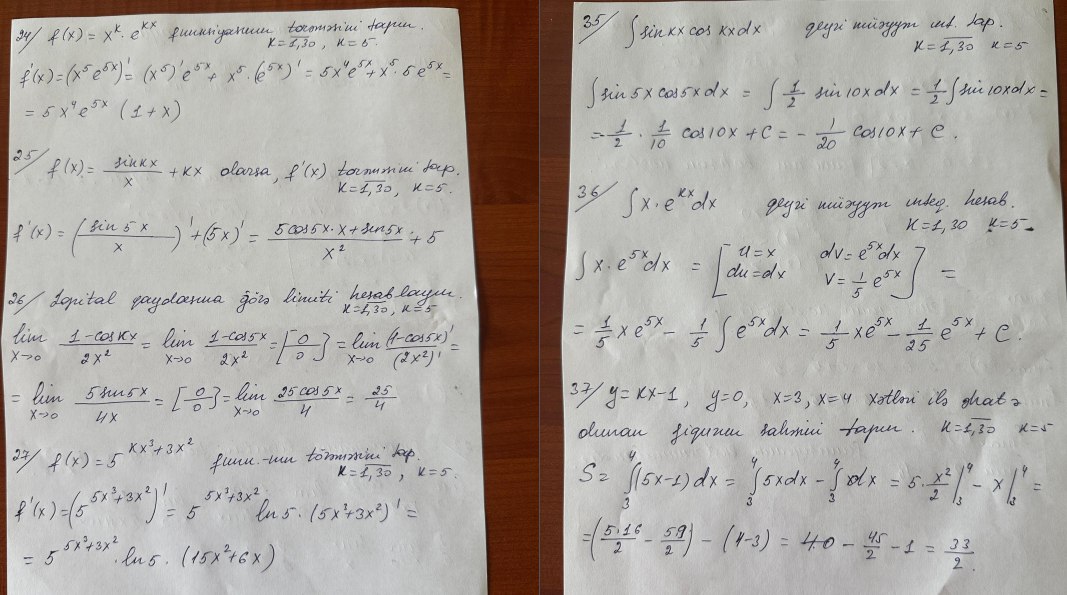 24/ f(x) = x^k · e^{kx} funksiyasının törəməsini tapın.
k=\overline{1,30}, k=5.
f'(x)=(x^5e^{5x})' = (x^5)'e^{5x} + x^5·(e^{5x})' = 5x^4e^{5x}+x^5·5e^{5x} =
= 5x^4e^{5x} (1+x)
25/ f(x) = \frac{sinkx}{x} + kx olarsa, f'(x) törəməsini tap.
k=\overline{1,30}, k=5.
f'(x) = (\frac{sin5x}{x})' + (5x)' = \frac{5cos5x·x+sin5x}{x^2} + 5
26/ Lopital qaydasına görə limiti hesablayın.
k=\overline{1,30}, k=5
lim_{x→0} \frac{1-coskx}{2x^2} = lim_{x→0} \frac{1-cos5x}{2x^2} = [\frac{0}{0}] = lim_{x→0} \frac{(1-cos5x)'}{(2x^2)'} =
= lim_{x→0} \frac{5sin5x}{4x} = [\frac{0}{0}] = lim_{x→0} \frac{25cos5x}{4} = \frac{25}{4}
27/ f(x) = 5^{kx^3+3x^2} funk.-nın törəməsini tap.
k=\overline{1,30}, k=5.
f'(x)=(5^{5x^3+3x^2})' = 5^{5x^3+3x^2} ln5·(5x^3+3x^2)' =
= 5^{5x^3+3x^2}·ln5·(15x^2+6x)
35/ ∫sinkx coskxdx qeyri müəyyən int. tap.
k=\overline{1,30} k=5
∫sin5xcos5xdx = ∫\frac{1}{2} sin10xdx = \frac{1}{2}∫sin10xdx =
= -\frac{1}{2}·\frac{1}{10} cos10x + C = -\frac{1}{20} cos10x + C.
36/ ∫x·e^{kx}dx qeyri müəyyən inteq. hesab.
k=1,30 k=5.
∫x·e^{5x}dx = [u=x dv=e^{5x}dx
du=dx v=\frac{1}{5}e^{5x}] =
= \frac{1}{5}xe^{5x} - \frac{1}{5}∫e^{5x}dx = \frac{1}{5}xe^{5x} - \frac{1}{25}e^{5x} + C.
37/ y=kx-1, y=0, x=3, x=4 xətləri ilə əhatə
olunan fiqurun sahəsini tapın. k=\overline{1,30} k=5
S = ∫_3^4(5x-1)dx = ∫_3^4 5xdx - ∫_3^4 dx = 5·\frac{x^2}{2}|_3^4 - x|_3^4 =
= (\frac{5·16}{2} - \frac{5·9}{2}) - (4-3) = 40 - \frac{45}{2} - 1 = \frac{33}{2}.